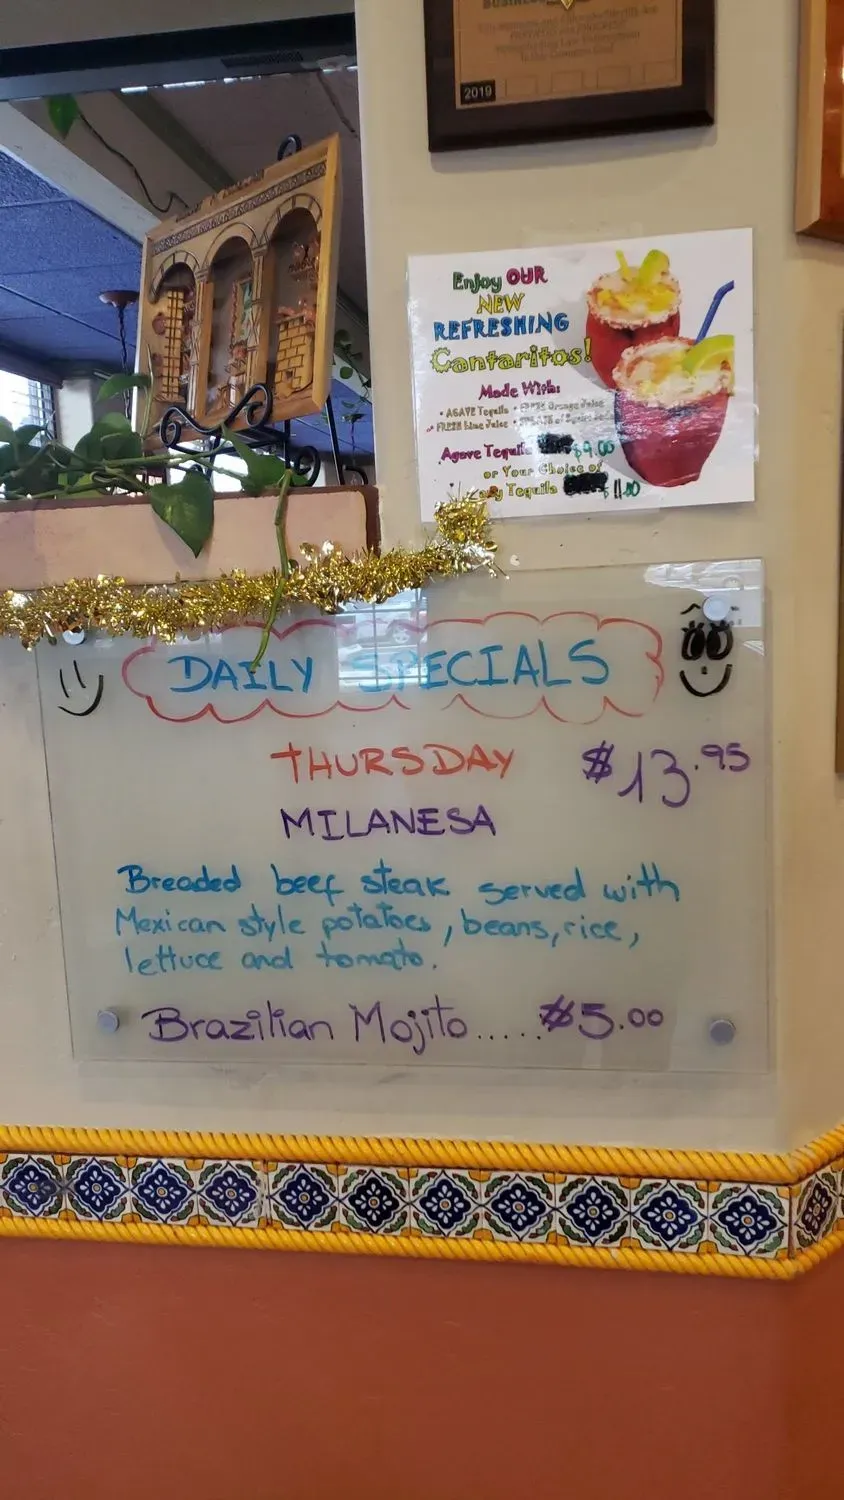 BUSINESS
2019
Enjoy OUR
NEW
REFRESHING
Cantaritos!
Made With:
• AGAVE Tequila • FRESH Orange Juice
• FRESH Lime Juice
Agave Tequila $9.00
or Your Choice of
Tequila $11.00
DAILY SPECIALS
THURSDAY $13.95
MILANESA
Breaded beef steak served with
Mexican style potatoes, beans, rice,
lettuce and tomato.
Brazilian Mojito.....$5.00